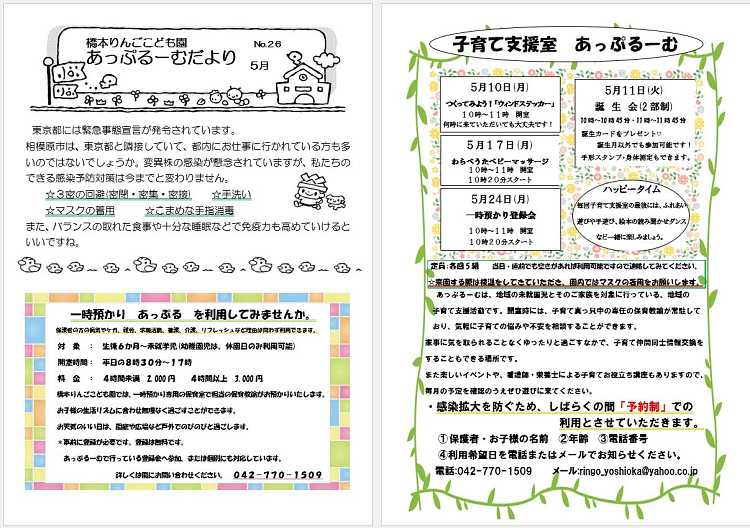 橋本りんごこども園
No.26
あっぷるーむだより
5月
りんご
りんご
東京都には緊急事態宣言が発令されています。
相模原市は、東京都と隣接していて、都内にお仕事に行かれている方も多
いのではないでしょうか。変異株の感染が懸念されていますが、私たちの
できる感染予防対策は今までと変わりません。
☆3密の回避(密閉・密集・密接) ☆手洗い
☆マスクの着用 ☆こまめな手指消毒
また、バランスの取れた食事や十分な睡眠などで免疫力も高めていけると
いいですね。
一時預かり あっぷる を利用してみませんか。
保護者の方の病気やケガ、就労、学校活動、看護、介護、リフレッシュなど理由は問わず利用できます。
対 象 : 生後6か月～未就学児(幼稚園児は、休園日のみ利用可能)
開室時間: 平日の8時30分～17時
料 金 : 4時間未満 2,000円 4時間以上 3,000円
橋本りんごこども園では、一時預かり専用の保育室で担当の保育教諭がお預かりいたします。
お子様の生活リズムに合わせ無理なく過ごすことができます。
お天気のいい日は、園庭や広場など戸外でのびのびと過ごします。
＊事前に登録が必要です。登録は無料です。
あっぷるーむで行っている登録会へ参加、または個別にも対応しています。
詳しくは園にお問い合わせください。 042-770-1509
子育て支援室 あっぷるーむ
5月10日(月)
つくってみよう!「ウィンドステッカー」
10時～11時 開室
何時に来ていただいても大丈夫です!
5月17日(月)
わらべうたベビーマッサージ
10時～11時 開室
10時20分スタート
5月24日(月)
一時預かり登録会
10時～11時 開室
10時20分スタート
5月11日(火)
誕生会(2部制)
10時～10時45分・11時～11時45分
誕生カードをプレゼント♡
誕生月以外でも参加可能です!
手形スタンプ・身体測定もできます。
ハッピータイム
毎回子育て支援室の最後には、ふれあい
遊びや手遊び、絵本の読み聞かせダンス
など一緒に楽しみましょう。
定員:各回5組 当日・直前でも空きがあれば利用可能ですので連絡してみてください。
☆来園する際は検温をしてきていただき、園内ではマスクの着用をお願いします。
あっぷるーむは、地域の未就園児とそのご家族を対象に行っている、地域の
子育て支援活動です。開室時には、子育て真っ只中の専任の保育教諭が常駐して
おり、気軽に子育ての悩みや不安を相談することができます。
家事に気を取られることなくゆったりと過ごすなかで、子育て仲間同士情報交換を
することもできる場所です。
また楽しいイベントや、看護師・栄養士による子育てお役立ち講座もありますので、
毎月の予定を確認のうえぜひ遊びに来てください。
・感染拡大を防ぐため、しばらくの間「予約制」での
利用とさせていただきます。
①保護者・お子様の名前 ②年齢 ③電話番号
④利用希望日を電話またはメールでお知らせください。
電話:042-770-1509 メール:ringo_yoshioka@yahoo.co.jp